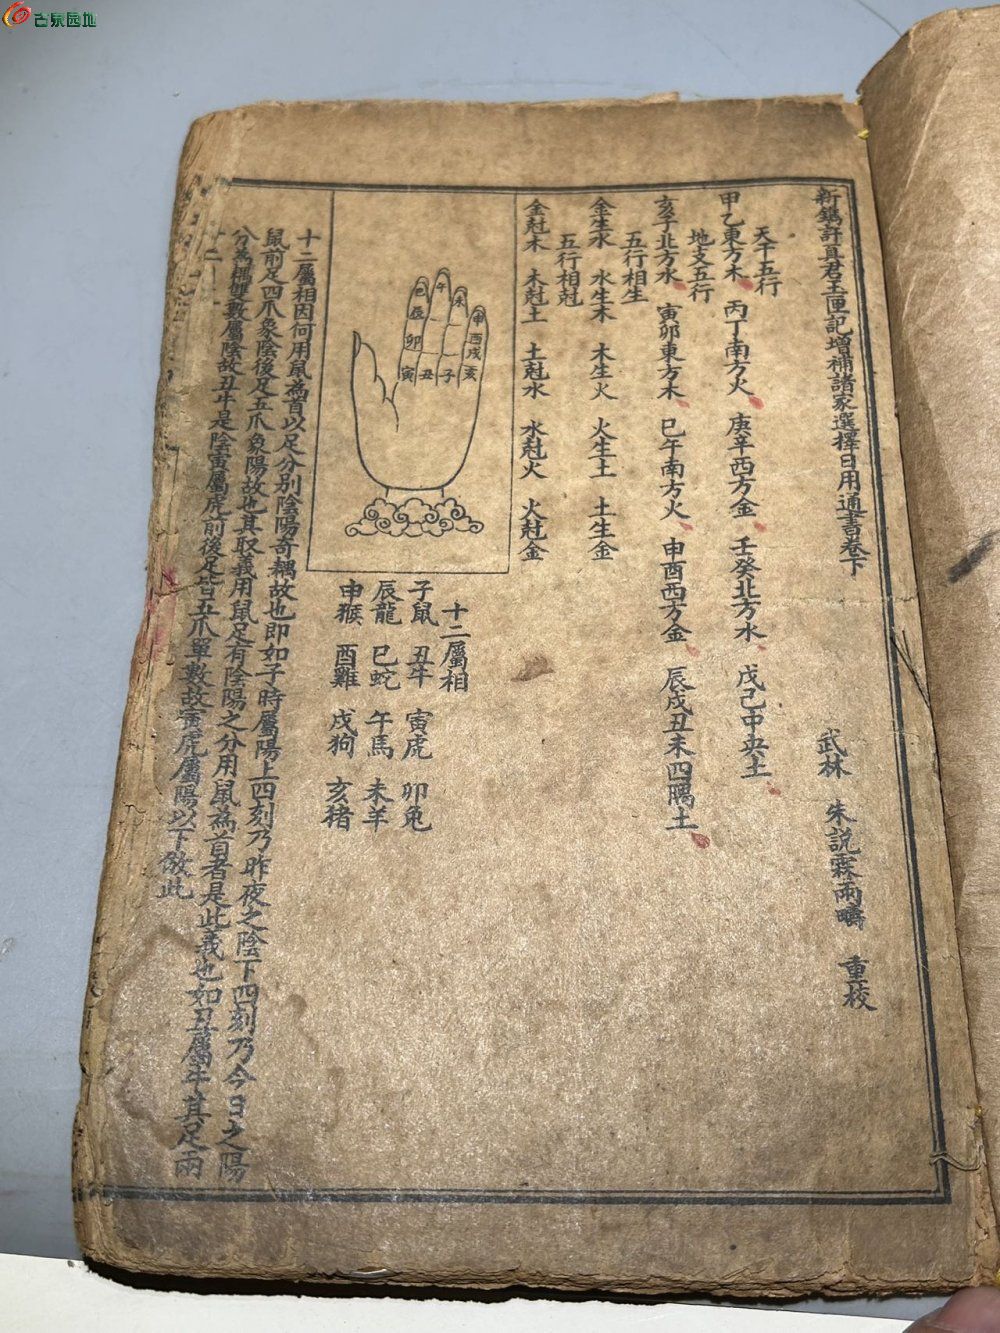 古泉园地
新鐫許真君玉匣記增補諸家選擇日用通書卷下
武林 朱說霖雨疇 重校
天干五行
甲乙東方木 丙丁南方火 庚辛西方金 壬癸北方水 戊己中央土
地支五行
亥子北方水 寅卯東方木 巳午南方火 申酉西方金 辰戌丑未四隅土
五行相生
金生水 水生木 木生火 火生土 土生金
五行相尅
金尅木 木尅土 土尅水 水尅火 火尅金
巳 午 未 申
辰 酉
卯 戌
寅 丑 子 亥
十二屬相
子鼠 丑牛 寅虎 卯兔
辰龍 巳蛇 午馬 未羊
申猴 酉雞 戌狗 亥猪
十二屬相因何用鼠為首以足分別陰陽奇耦故也即如子時屬陽上四刻乃昨夜之陰下四刻乃今日之陽
鼠前足四爪象陰後足五爪象陽故也其取義用鼠足有陰陽之分用鼠為首者是此義也如丑屬牛其足兩
分為耦雙數屬陰故丑牛是陰寅屬虎前後足皆五爪單數故寅虎屬陽以下倣此